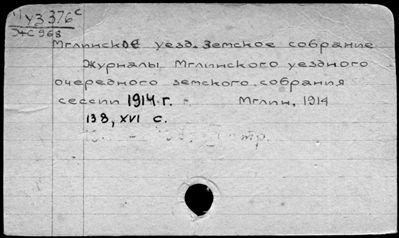 У3 376 с
ЖС 968
Мглинское уезд. Земское собрание
Журналы Мглинского уездного
очередного земского собрания
сессии 1914 г. Мглин, 1914
138, XVI с.